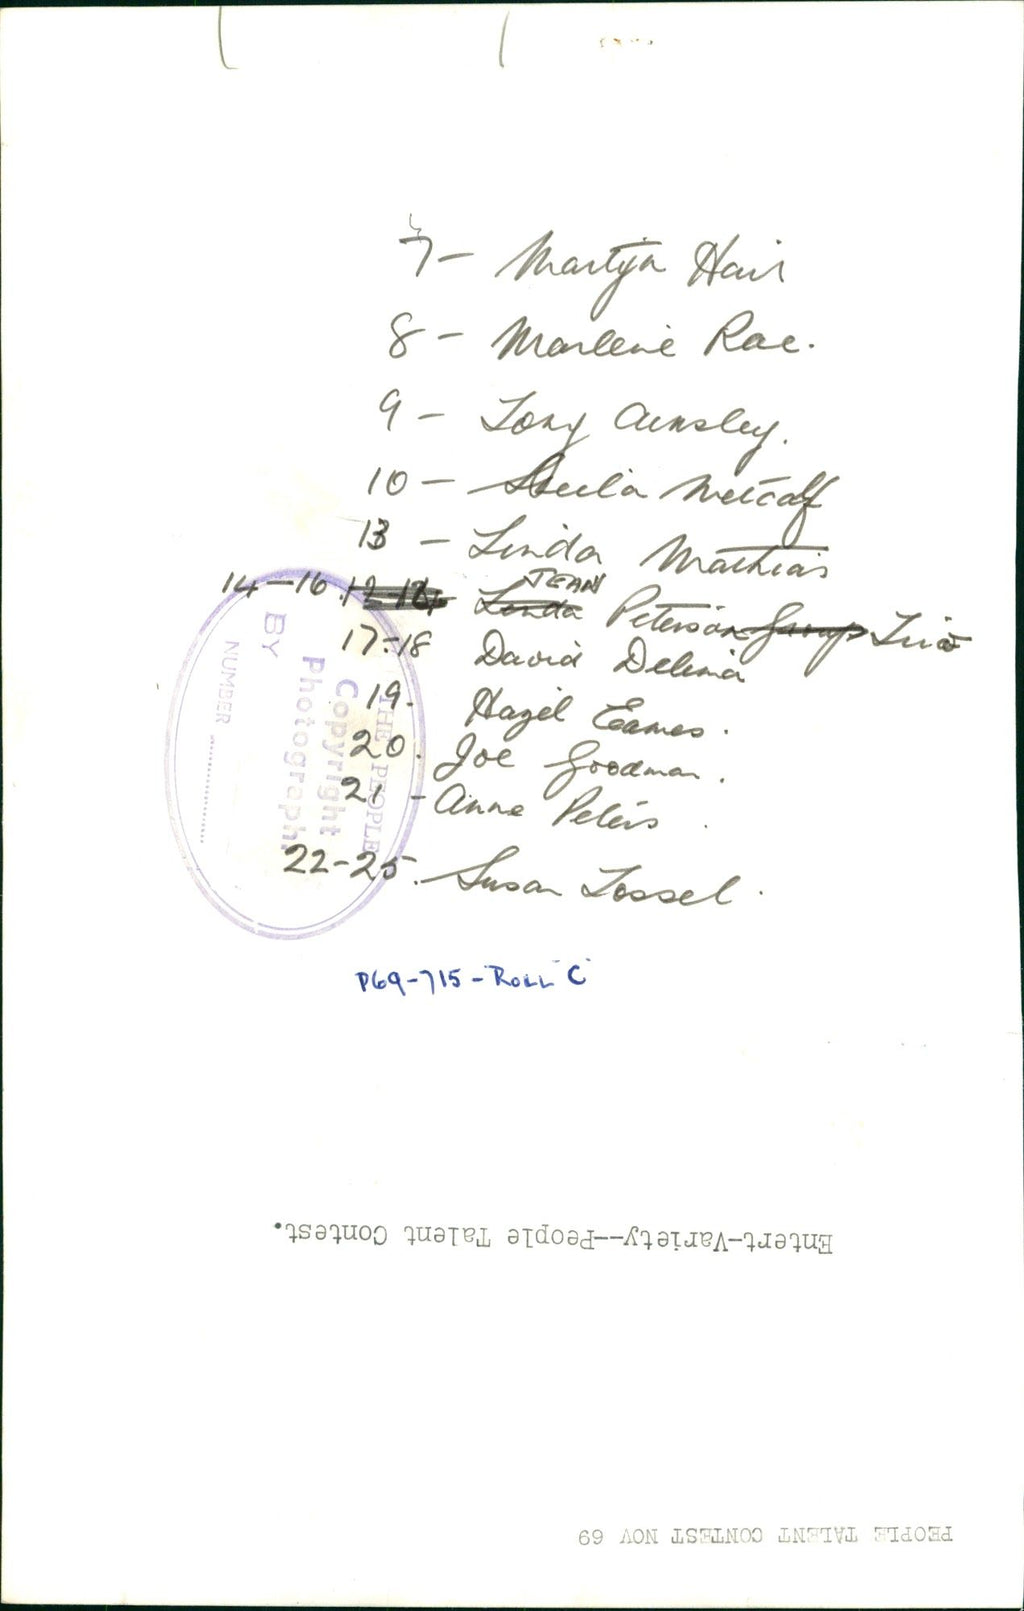 7 - Martyn Hair
8 - Marlene Rae.
9 - Tony Ainsley.
10 - Sheila Metcalf
13 - Linda Mathias
14-16. 12-14 Linda JEAN Peterson Group Trio
17-18 David Delma
19. Hazel Eames.
20. Joe Goodman.
21 - Anne Peters.
22-25. Susan Tossel.
THE PEOPLE
Copyright
Photograph.
BY
NUMBER
P69-715-"ROLL C"
Entert-Variety--People Talent Contest.
PEOPLE TALENT CONTEST NOV 69